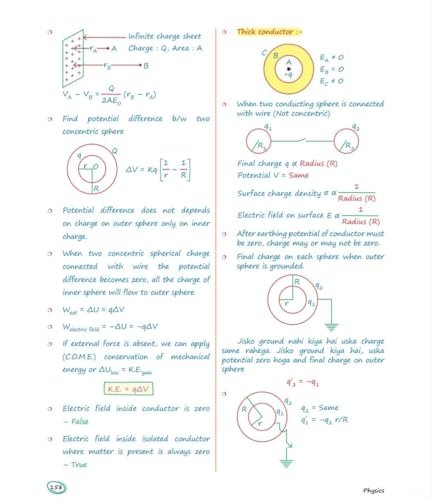 Infinite charge sheet
rA A Charge : Q, Area : A
rB B
VA − VB = Q/2AE₀ (rB − rA)
Find potential difference b/w two
concentric sphere
q Q r O R ΔV = Kq [1/r − 1/R]
Potential difference does not depends
on charge on outer sphere only on inner
charge.
When two concentric spherical charge
connected with wire the potential
difference becomes zero, all the charge of
inner sphere will flow to outer sphere.
Wext = ΔU = qΔV
Welectric field = −ΔU = −qΔV
if external force is absent, we can apply
(C.O.M.E.) conservation of mechanical
energy or ΔUloss = K.E.gain
K.E. = qΔV
Electric field inside conductor is zero
– False
Electric field inside isolated conductor
where matter is present is always zero
– True
158
Thick conductor :-
C B A +q
EA ≠ 0
EB = 0
EC ≠ 0
When two conducting sphere is connected
with wire (Not concentric)
q1 q2
R1 R2
Final charge q α Radius (R)
Potential V = Same
Surface charge density σ α 1/Radius (R)
Electric field on surface E α 1/Radius (R)
After earthing potential of conductor must
be zero, charge may or may not be zero.
Final charge on each sphere when outer
sphere is grounded.
R q2 r q1
Jisko ground nahi kiya hai uska charge
same rahega. Jisko ground kiya hai, uska
potential zero hoga and final charge on outer
sphere
q'2 = −q1
R q2 r q1
q2 = Same
q'1 = −q2 r/R
Physics